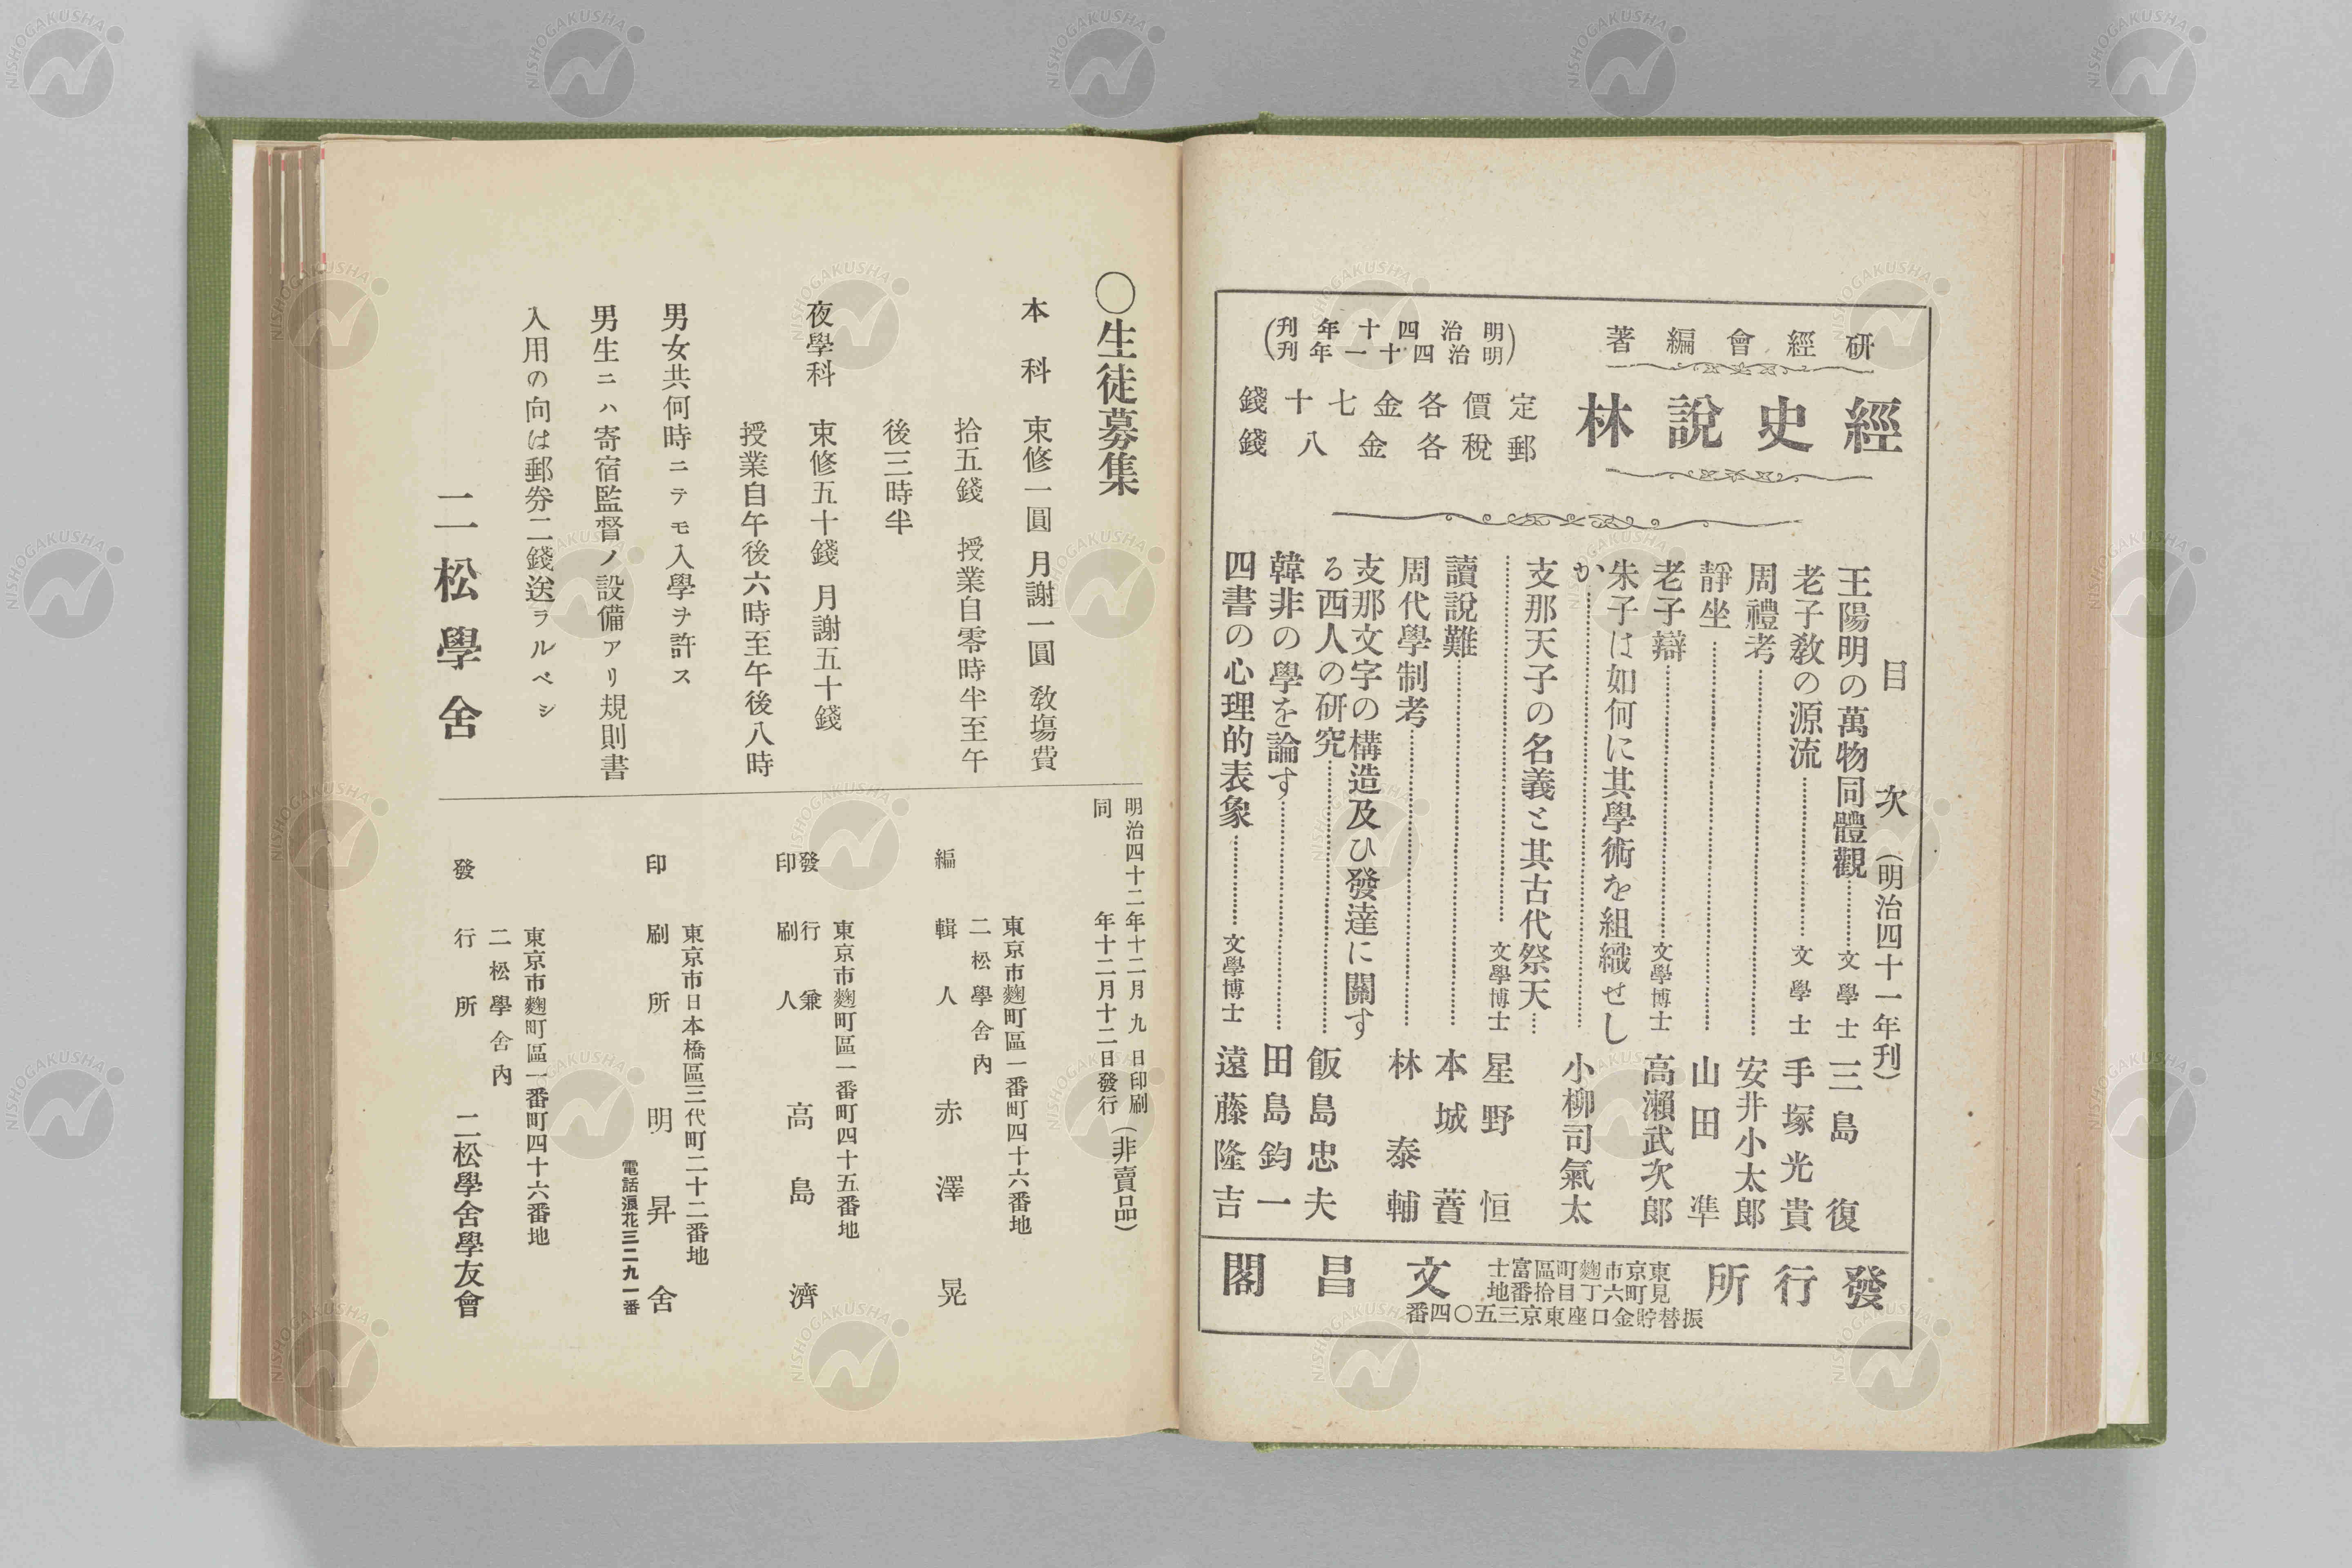 研經會編著
經史說林
(明治四十年刊
明治四十一年刊)
定價各金七十錢
郵稅各金八錢
目次(明治四十一年刊)
王陽明の萬物同體觀………文學士 三島復
老子敎の源流………文學士 手塚光貴
周禮考………安井小太郎
靜坐………山田準
老子辯………文學博士 高瀨武次郎
朱子は如何に其學術を組織せし
か………小柳司氣太
支那天子の名義と其古代祭天…
………文學博士 星野恒
讀說難………本城蕡
周代學制考………林泰輔
支那文字の構造及ひ發達に關す
る西人の研究………飯島忠夫
韓非の學を論す………田島鈞一
四書の心理的表象………文學博士 遠藤隆吉
發行所
東京市麴町區富士
見町六丁目拾番地
文昌閣
振替貯金口座東京三五〇四番
〇生徒募集
本科 束修一圓 月謝一圓 敎塲費
拾五錢 授業自零時半至午
後三時半
夜學科 束修五十錢 月謝五十錢
授業自午後六時至午後八時
男女共何時ニテモ入學ヲ許ス
男生ニハ寄宿監督ノ設備アリ規則書
入用の向は郵券二錢送ラルベシ
二松學舍
明治四十二年十二月九日印刷
同年十二月十二日發行(非賣品)
東京市麴町區一番町四十六番地
二松學舍內
編輯人 赤澤晃
東京市麴町區一番町四十五番地
發行兼
印刷人 高島濟
東京市日本橋區三代町二十二番地
印刷所 明昇舍
電話浪花三二九一番
東京市麴町區一番町四十六番地
二松學舍內
發行所 二松學舍學友會
NISHOGAKUSHA